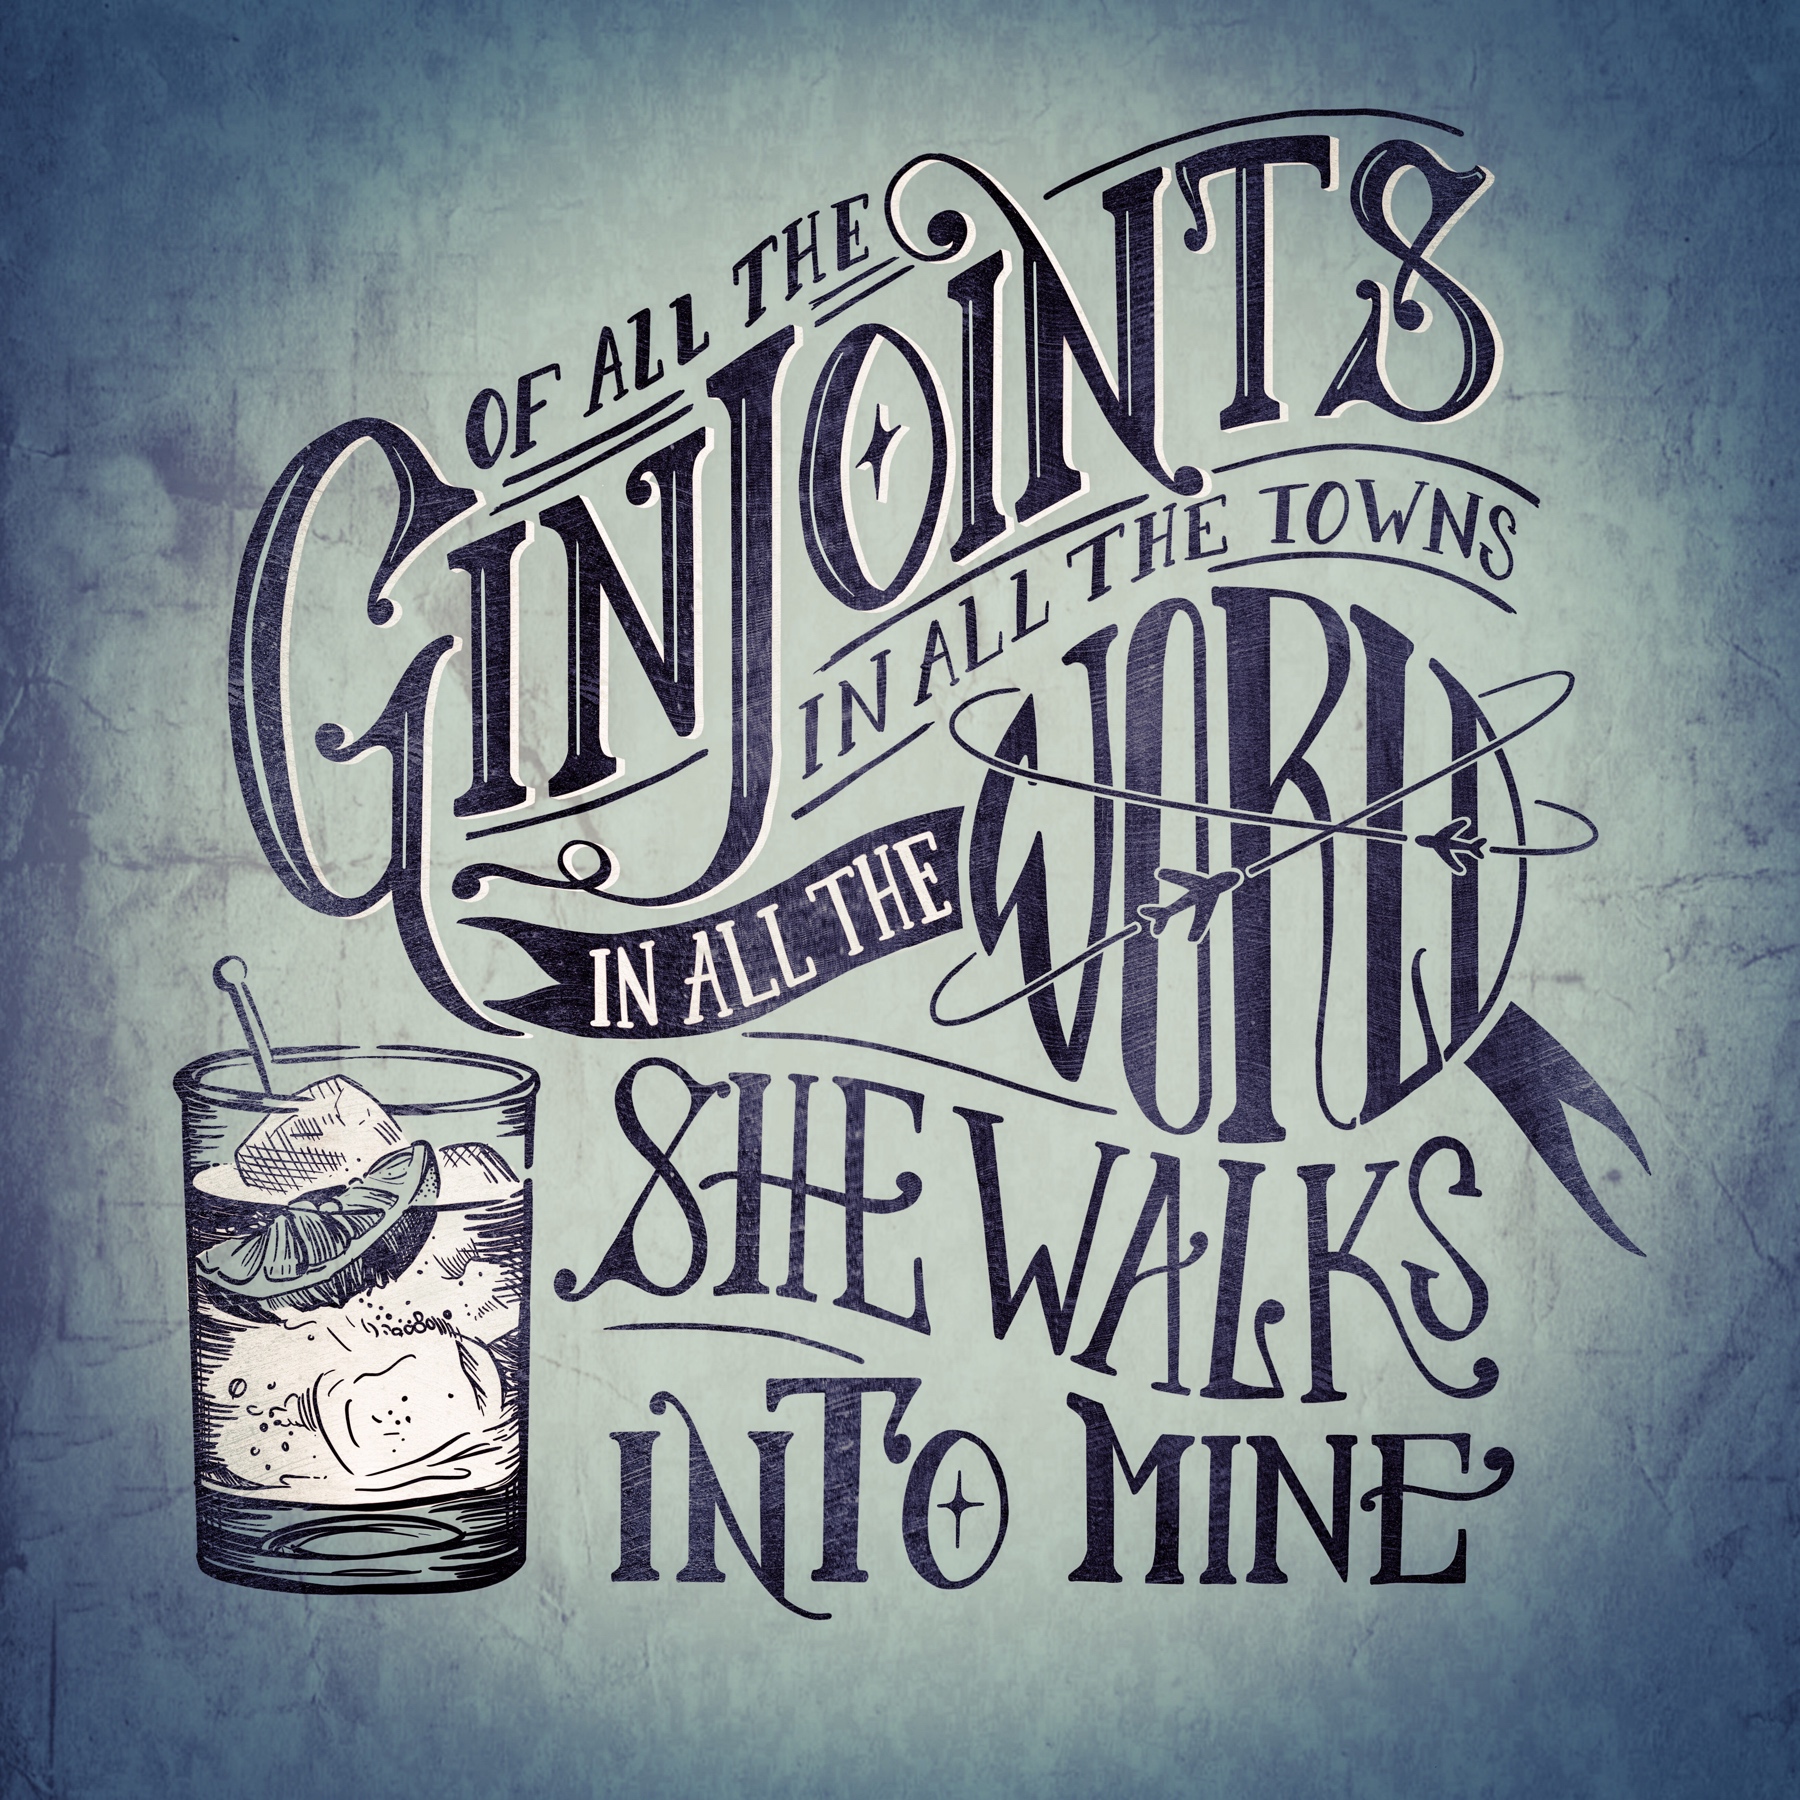 OF ALL THE
GIN JOINTS
IN ALL THE TOWNS
IN ALL THE WORLD
SHE WALKS
INTO MINE